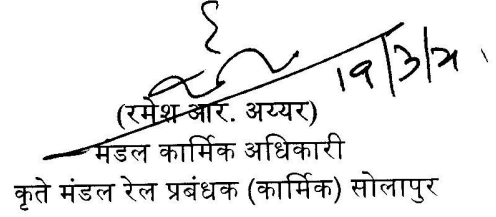 (रमेश आर. अय्यर)
मंडल कार्मिक अधिकारी
कृते मंडल रेल प्रबंधक (कार्मिक) सोलापुर